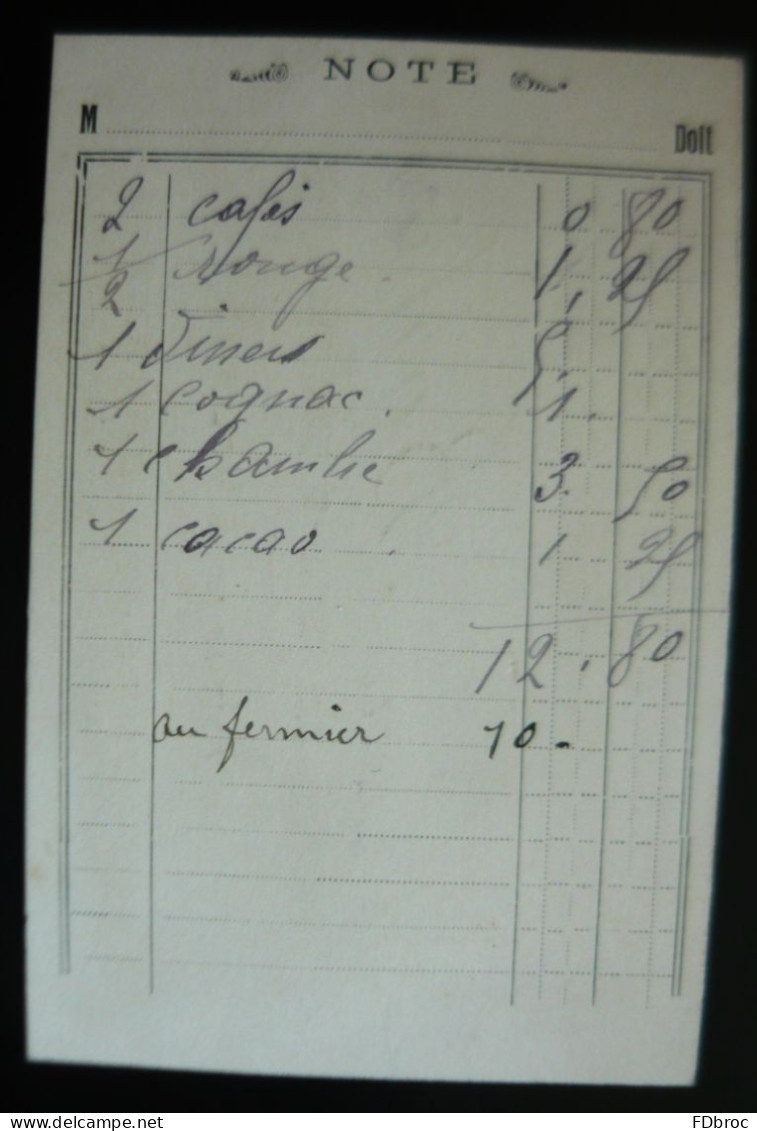 NOTE
M Doit
2 cafés 0 80
1/2 rouge. 1, 25
1 Diner 5.
1 cognac. 1.
1 chambre 3. 50
1 cacao. 1 25
12.80
au fermier 10.-
www.delcampe.net
FDbroc